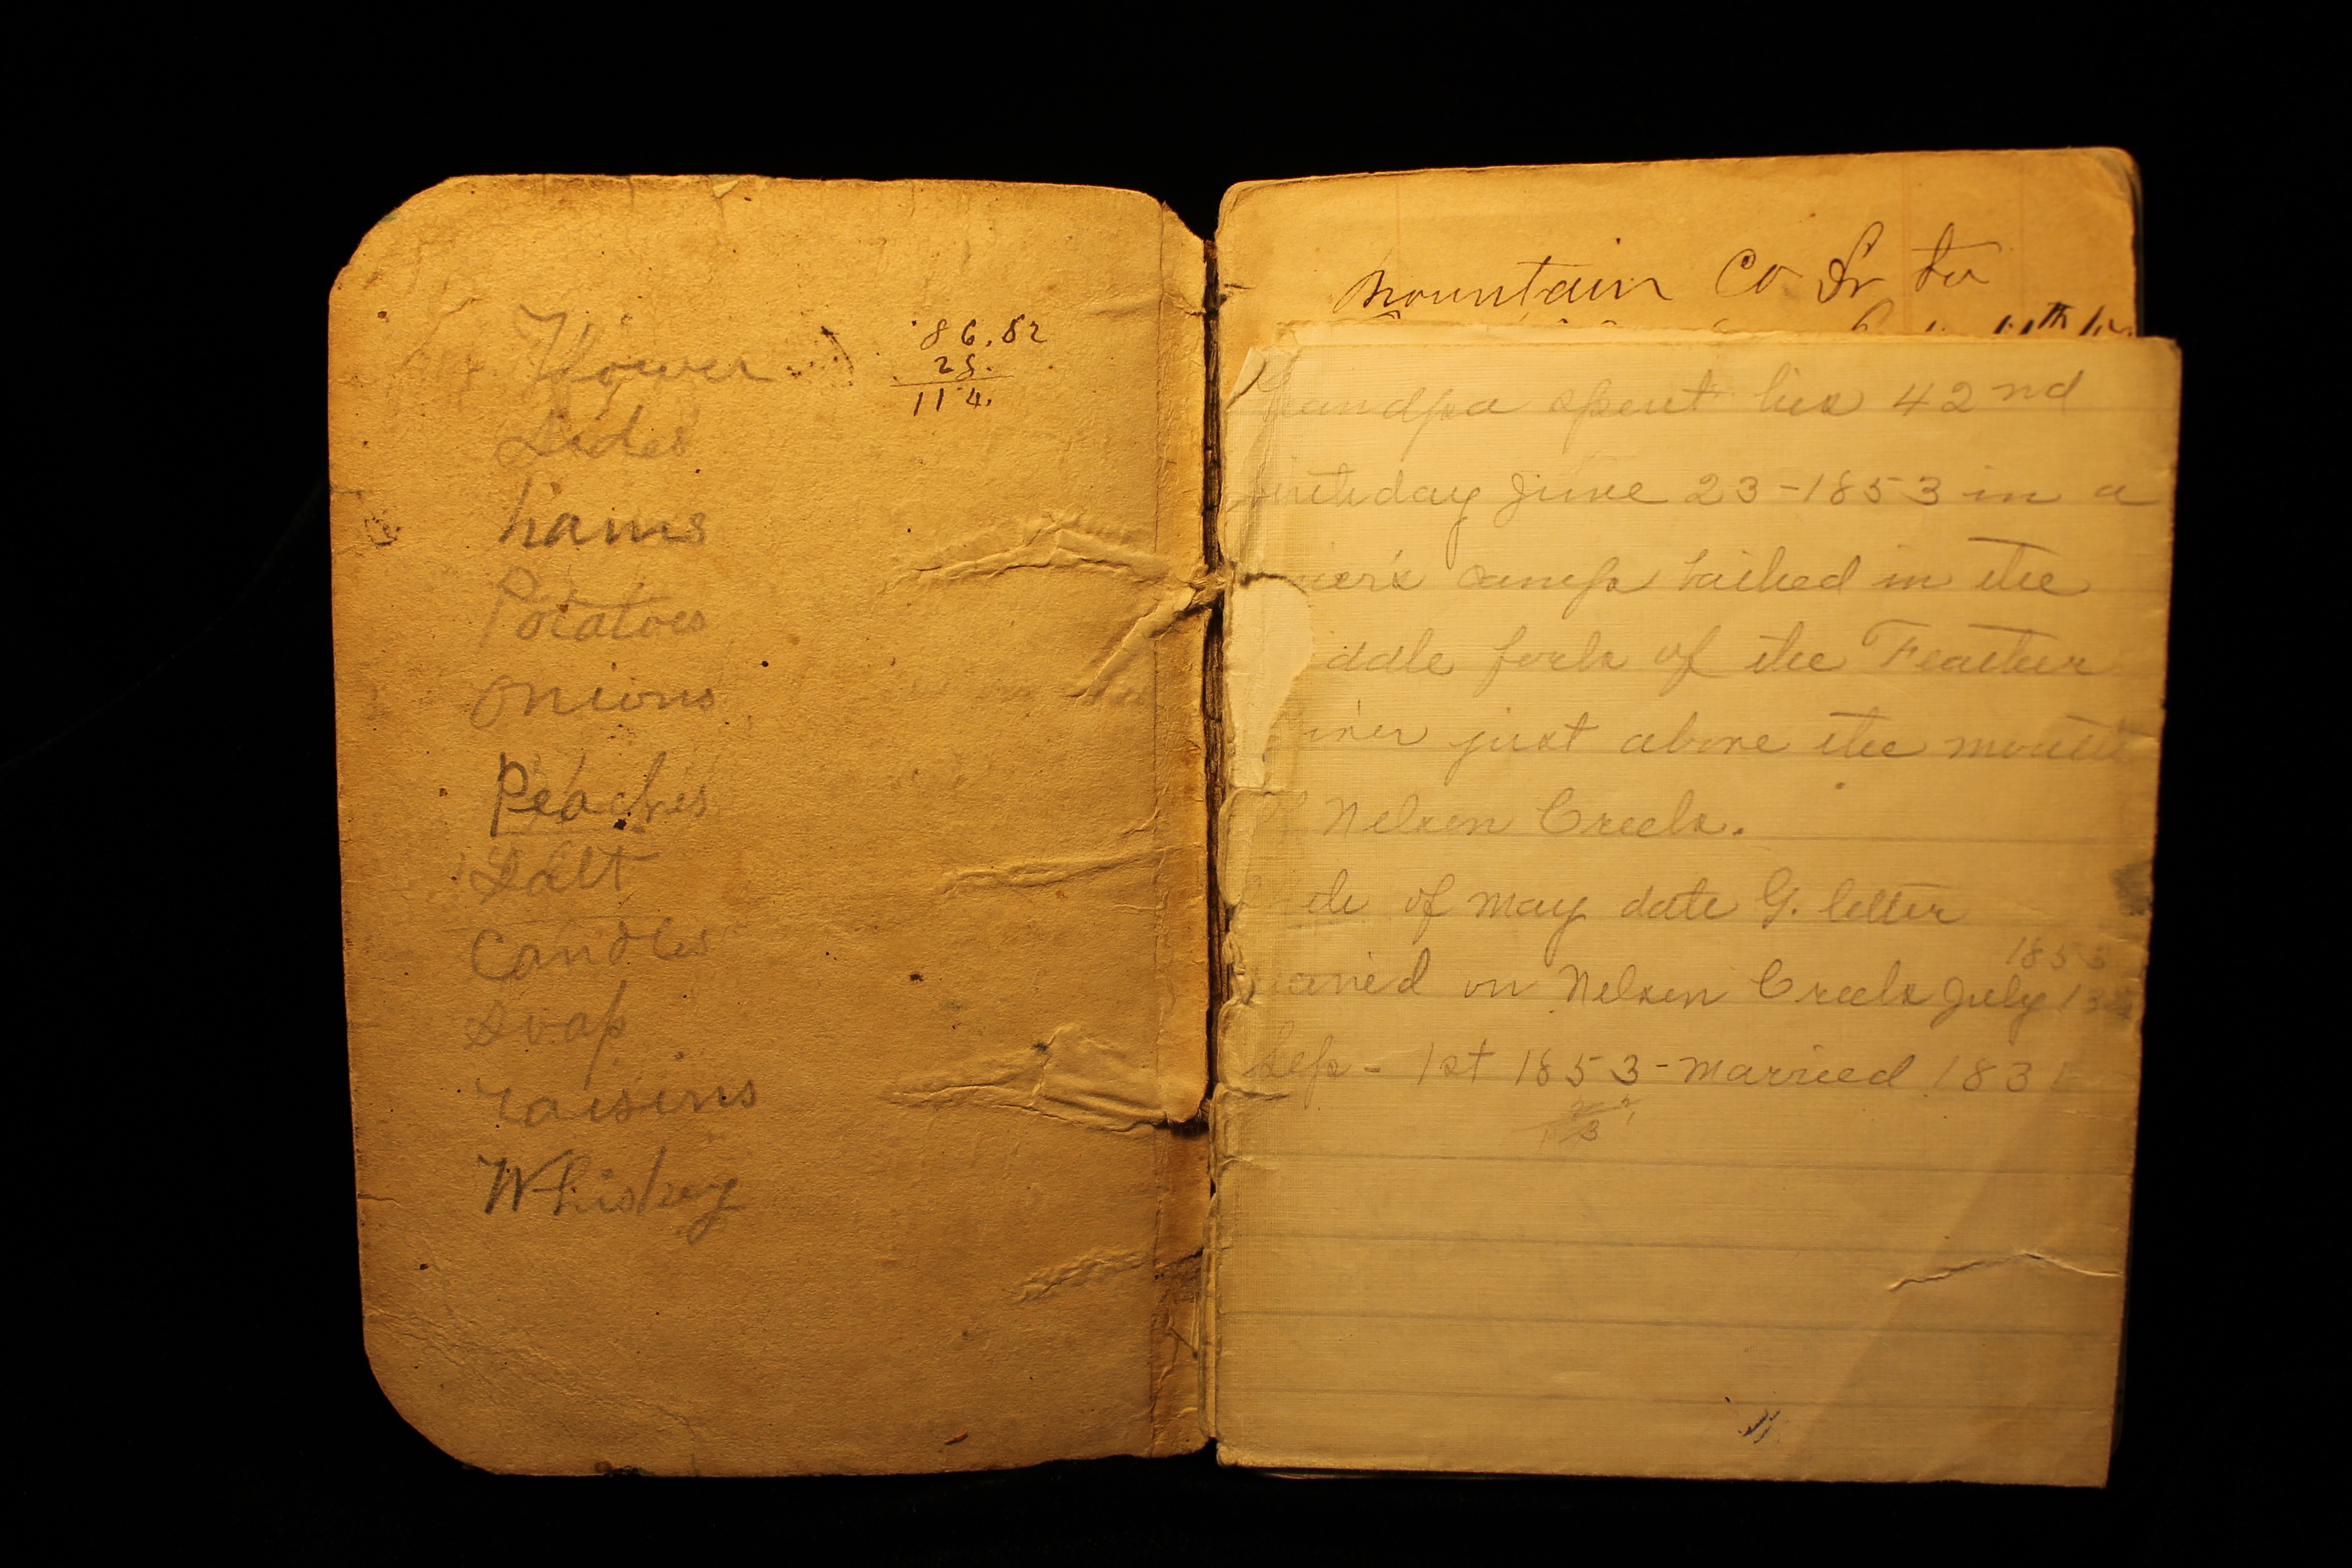 Flower
Sides
hams
Potatoes
Onions
Peaches
Salt
Candles
Soap
raisins
Whiskey
86.82
28.
114.
Mountain Co Dr to
Grandpa spent his 42nd
birthday June 23-1853 in a
camp bathed in the
iddle fork of the Feather
River just above the mouth
of Nelson Creek.
of May date G. letter
on Nelson Creek July 13
1853
Sep - 1st 1853 - Married 183